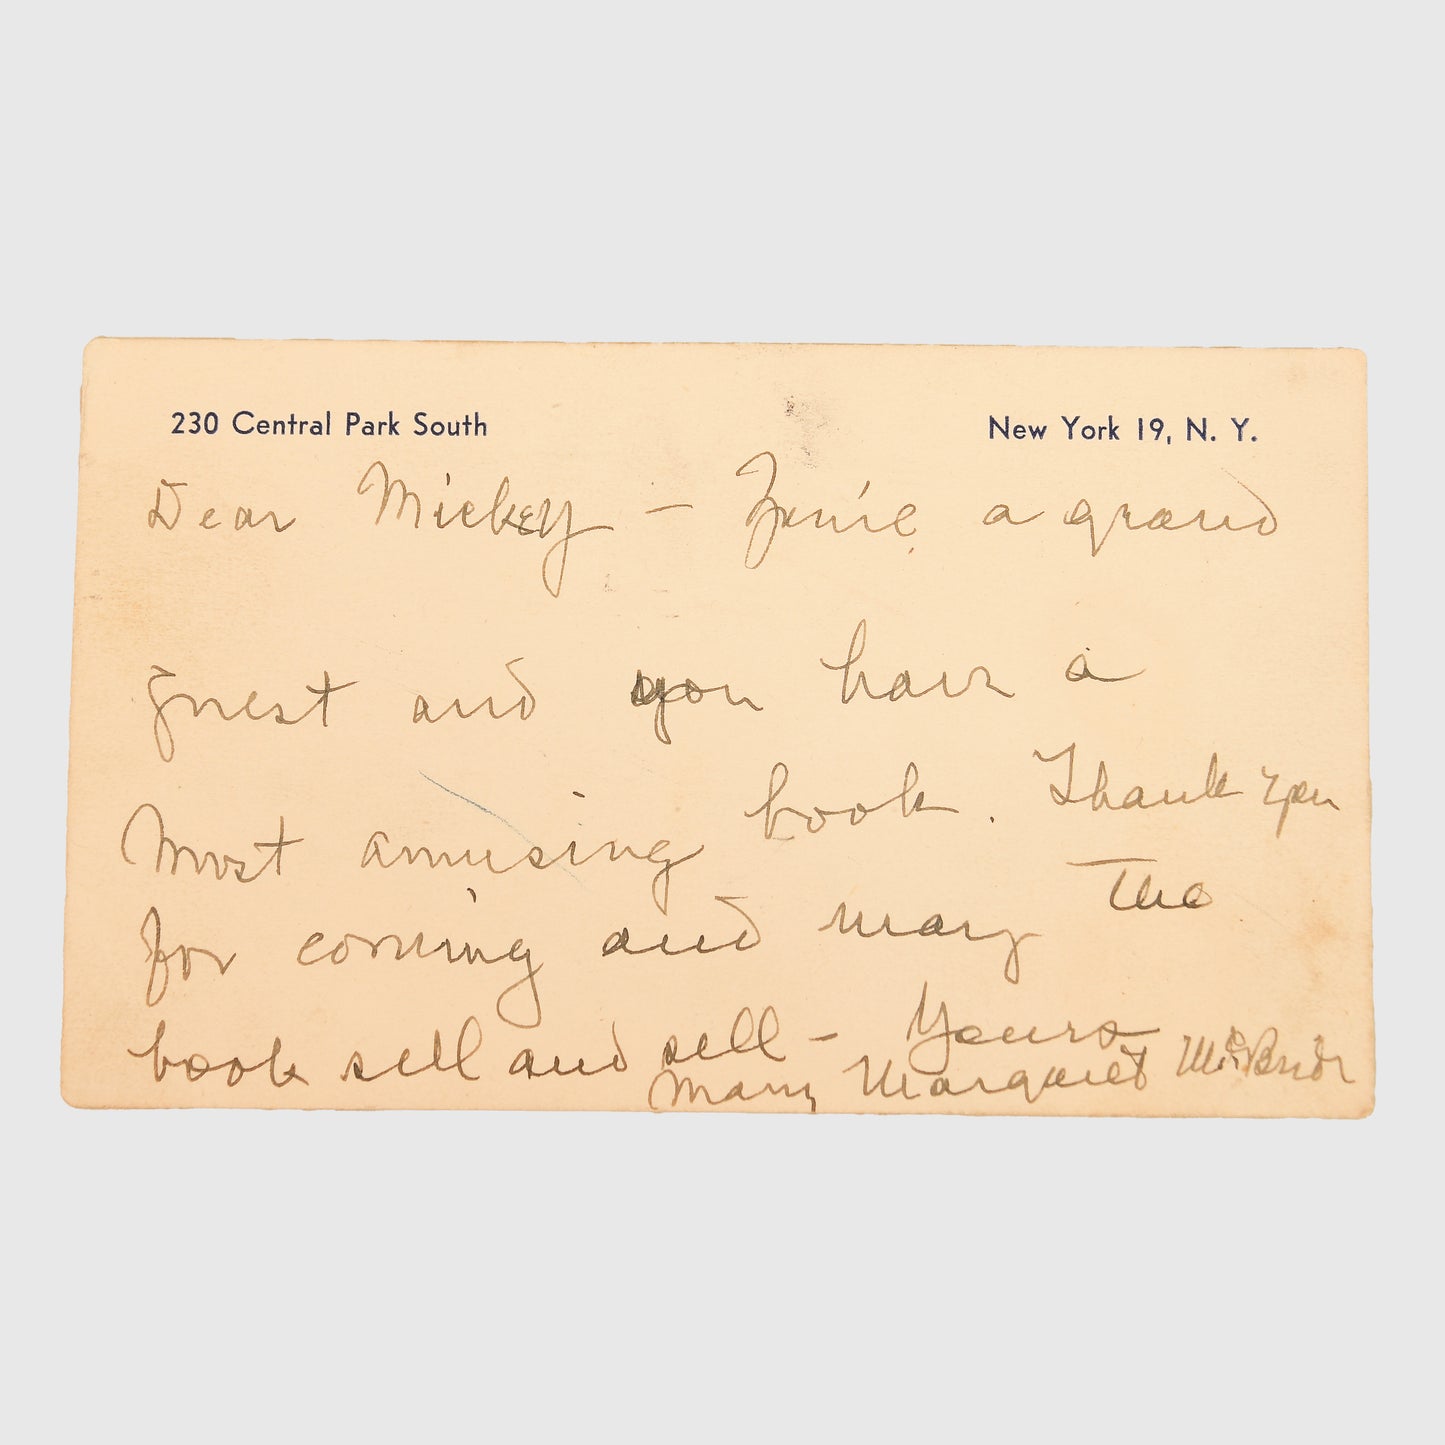 230 Central Park South New York 19, N. Y.
Dear Mickey – You're a grand
guest and you have a
most amusing book. Thank you
for coming and may the
book sell and sell – Yours
Mary Margaret McBride